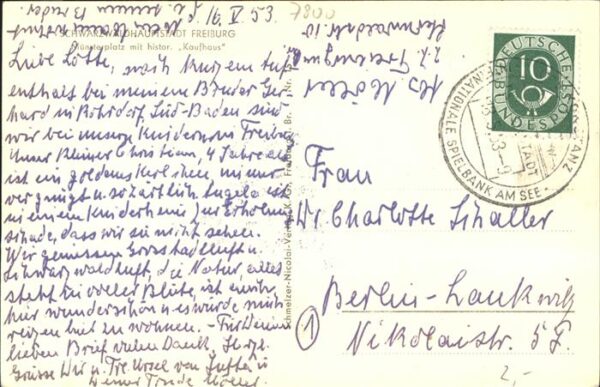 d. 16. V. 53.
7800
SCHWARZWALDHAUPTSTADT FREIBURG
Münsterplatz mit histor. „Kaufhaus"
Liebe Lotte, nach kurzem Auf-
enthalt bei meinem Bruder Ger-
hard in Rohrdorf, Süd-Baden sind
wir bei unseren Kindern in Freiburg.
Unser kleiner Christian, 4 Jahre alt
ist ein goldenes Kerlchen, immer
vergnügt u. so zärtlich. Angela ist
in einem Kinderheim zur Erholung
schade, dass wir sie nicht sehen.
Wir geniessen Grosstadtluft u.
Schwarzwaldluft, die Natur, alles
steht in voller Blüte, ist
hier wunderschön u. es würde mich
reizen hier zu wohnen. - Für Deinen
lieben Brief vielen Dank. Herzl.
Grüsse Dir u.
Deine Trude Möller
Abs. Möller
z. Z. Freiburg
Schmelzer-Nicolai-Verlag K. G., Freiburg i. Br.
DEUTSCHE BUNDESPOST
10
KONSTANZ
INTERNATIONALE SPIELBANK AM SEE
Frau
Dr. Charlotte Schaller
1
Berlin-Lankwitz
Nikolaistr. 5 I.
2-